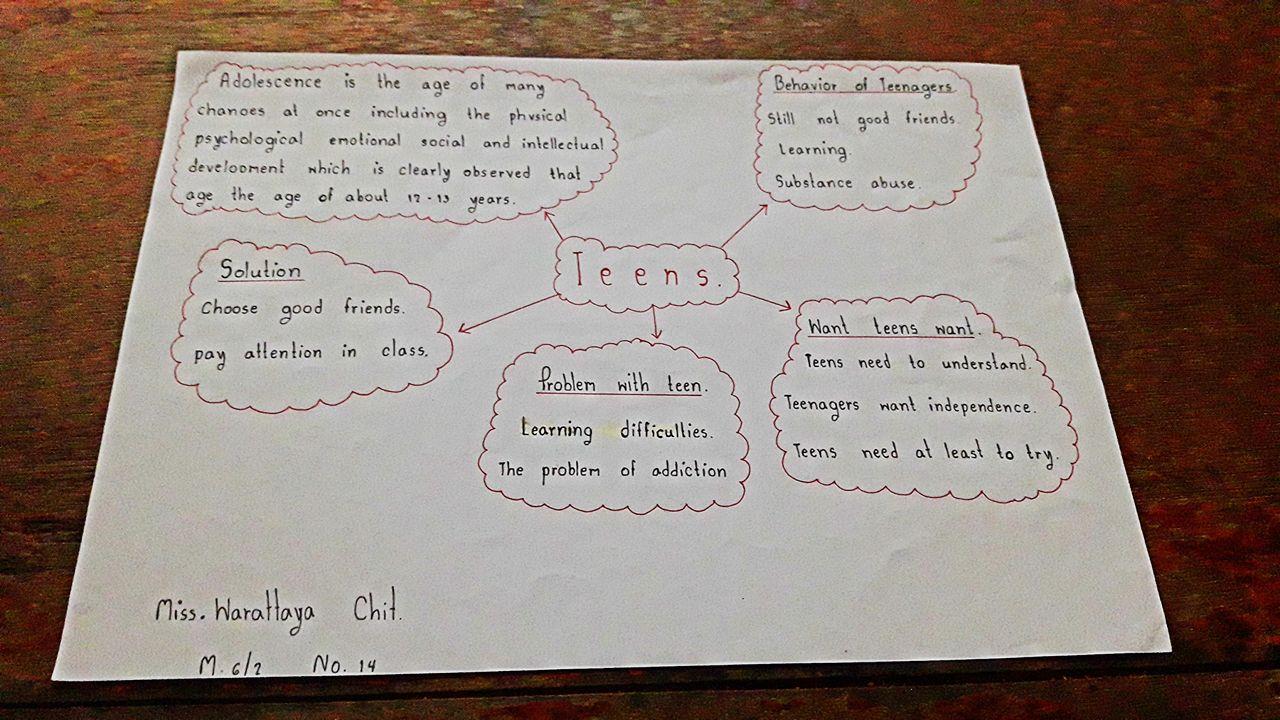 Adolescence is the age of many
changes at once including the physical
psychological emotional social and intellectual
development which is clearly observed that
age the age of about 12-13 years.
Behavior of Teenagers
Still not good friends.
Learning.
Substance abuse.
Teens.
Solution
Choose good friends.
pay attention in class.
Problem with teen.
Learning difficulties.
The problem of addiction
Want teens want.
Teens need to understand.
Teenagers want independence.
Teens need at least to try.
Miss. Warattaya Chit.
M. 6/2 No. 14